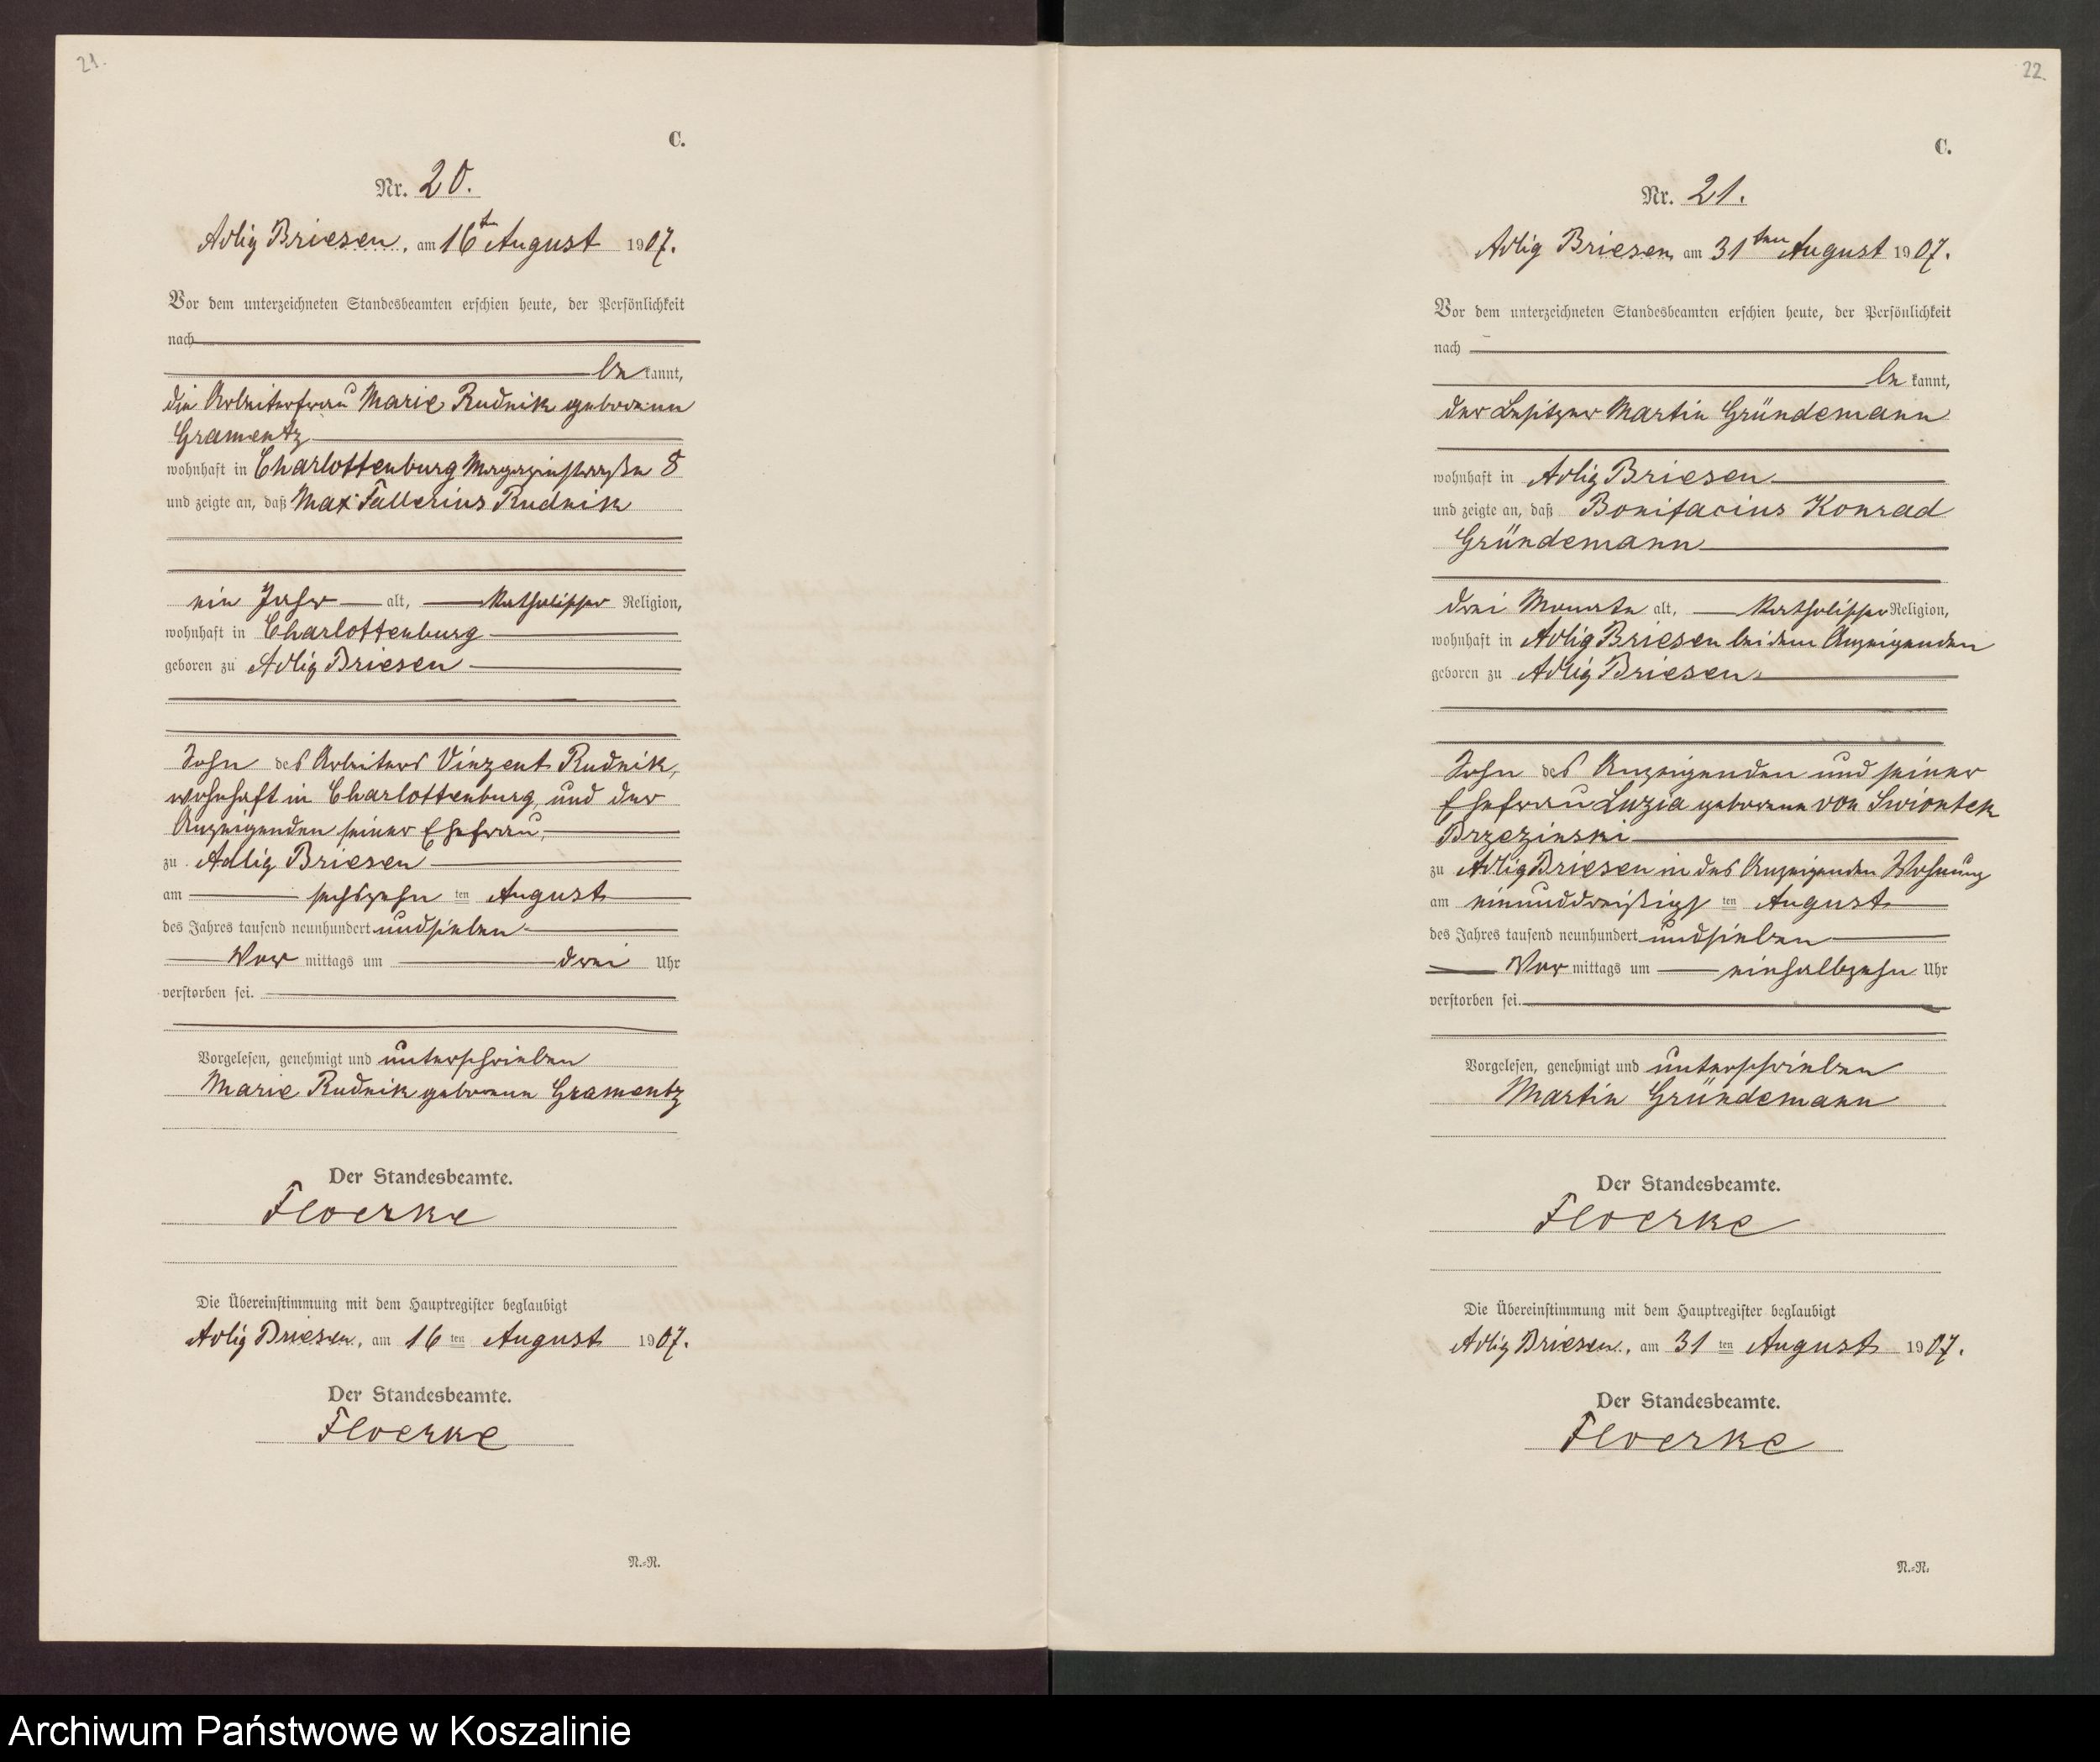 21.
C.
Nr. 20.
Adlig Briesen, am 16t August 1907.
Vor dem unterzeichneten Standesbeamten erschien heute, der Persönlichkeit
nach
be kannt,
die Arbeiterfrau Marie Rudnik geborenen
Gramentz
wohnhaft in Charlottenburg Magazinstraße 8
und zeigte an, daß Max Vallerius Rudnik
ein Jahr alt, katholischer Religion,
wohnhaft in Charlottenburg
geboren zu Adlig Briesen
Sohn des Arbeiters Vinzent Rudnik,
wohnhaft in Charlottenburg, und der
Anzeigenden seiner Ehefrau,
zu Adlig Briesen
am sechszehn ten August
des Jahres tausend neunhundert und sieben
Vor mittags um drei Uhr
verstorben sei.
Vorgelesen, genehmigt und unterschrieben
Marie Rudnik geborene Gramentz
Der Standesbeamte.
Floerke
Die Übereinstimmung mit dem Hauptregister beglaubigt
Adlig Briesen, am 16 ten August 1907.
Der Standesbeamte.
Floerke
N.-R.
22.
C.
Nr. 21.
Adlig Briesen am 31ten August 1907.
Vor dem unterzeichneten Standesbeamten erschien heute, der Persönlichkeit
nach
be kannt,
der Besitzer Martin Gründemann
wohnhaft in Adlig Briesen
und zeigte an, daß Bonifacius Konrad
Gründemann
drei Monate alt, katholischer Religion,
wohnhaft in Adlig Briesen bei dem Anzeigenden
geboren zu Adlig Briesen
Sohn des Anzeigenden und seiner
Ehefrau Luzia geborene von Swiontek
Brzezinski
zu Adlig Briesen in des Anzeigenden Wohnung
am einunddreißigs ten August
des Jahres tausend neunhundert und sieben
Vor mittags um einhalbzehn Uhr
verstorben sei.
Vorgelesen, genehmigt und unterschrieben
Martin Gründemann
Der Standesbeamte.
Floerke
Die Übereinstimmung mit dem Hauptregister beglaubigt
Adlig Briesen, am 31 ten August 1907.
Der Standesbeamte.
Floerke
N.-R.
Archiwum Państwowe w Koszalinie